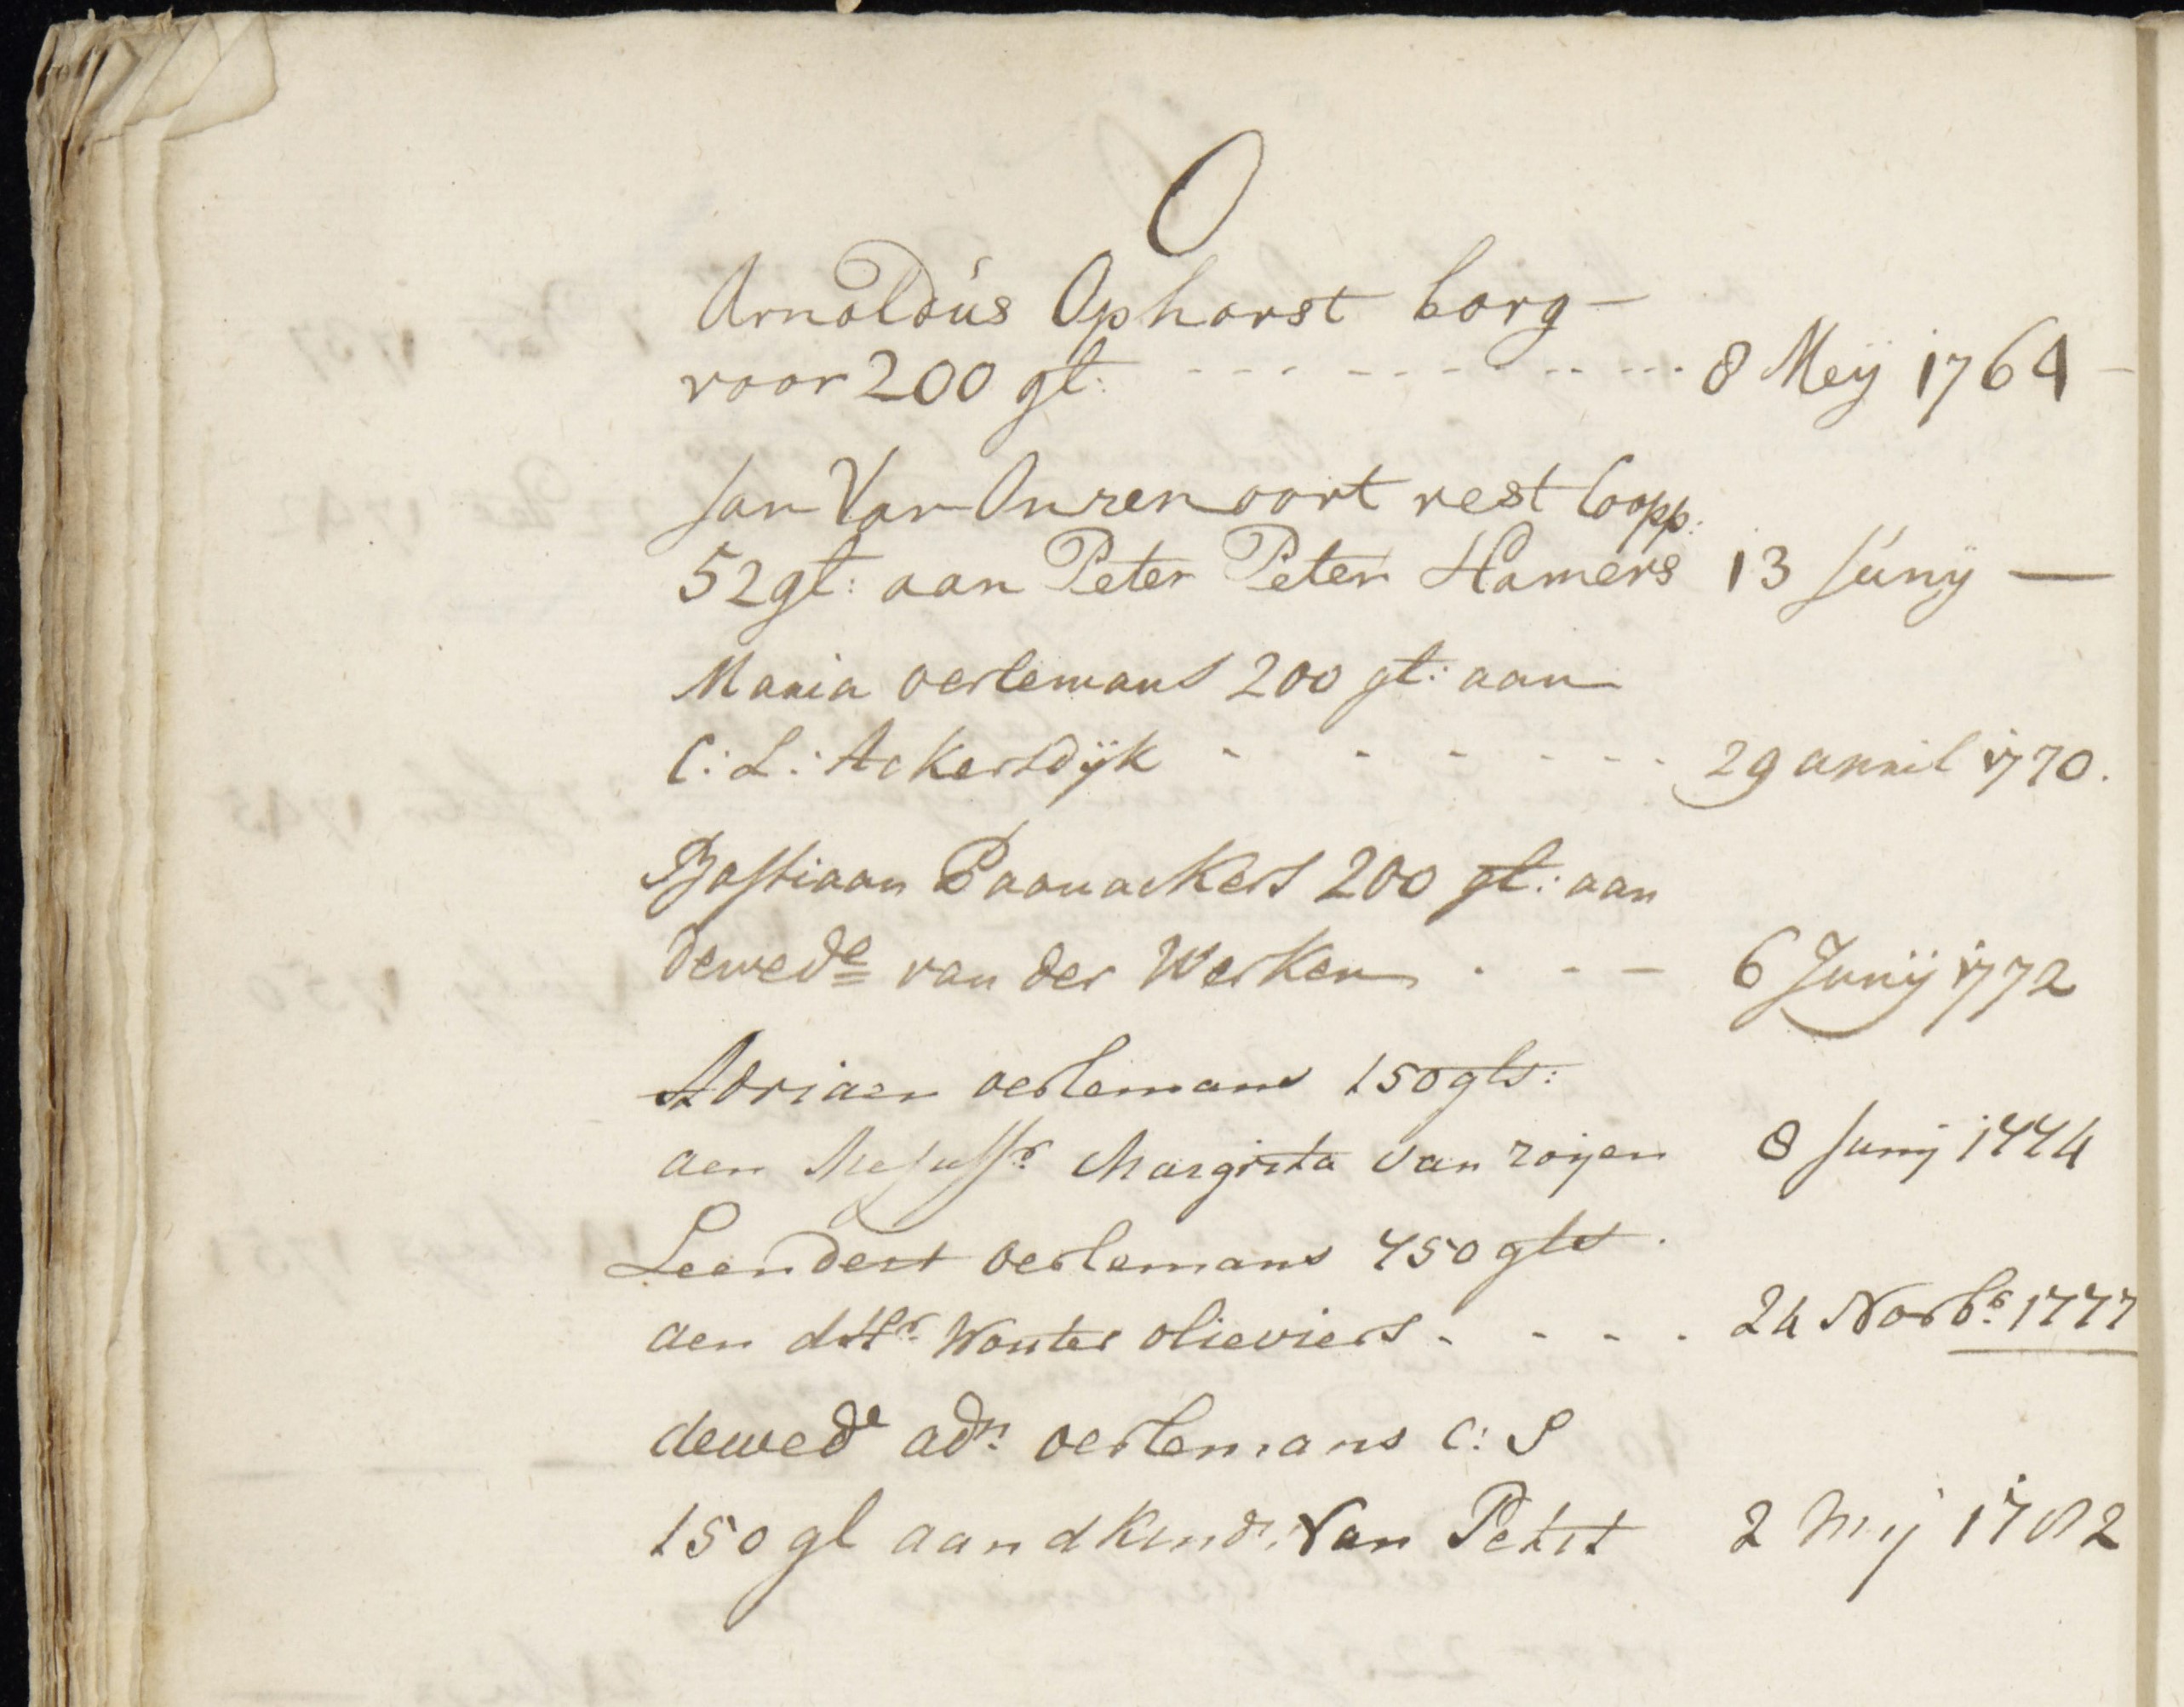 O
Arnoldus Ophorst borg
voor 200 gl: - - - - - - - - 8 Meij 1764
Jan Van Onzenoort rest Coopp:
52 gl: aan Peter Peter Hamers 13 Junij —
Maria oerlemans 200 gl: aan
C: L: Ackersdijk - - - - - - 29 april 1770.
Bastiaan Paanackers 200 gl: aan
dewede van der Werken - - - 6 Junij 1772
Adriaen oerlemans 150 gls:
aen Mejuffr. Margrita van roijen 8 Junij 1774
Leendert oerlemans 450 gls.
aen dHr. Wouter olieviers - - - - 24 Novbr. 1777
dewede adn: oerlemans C: S
150 gl aan d kind: Van Petit 2 Mij 1782